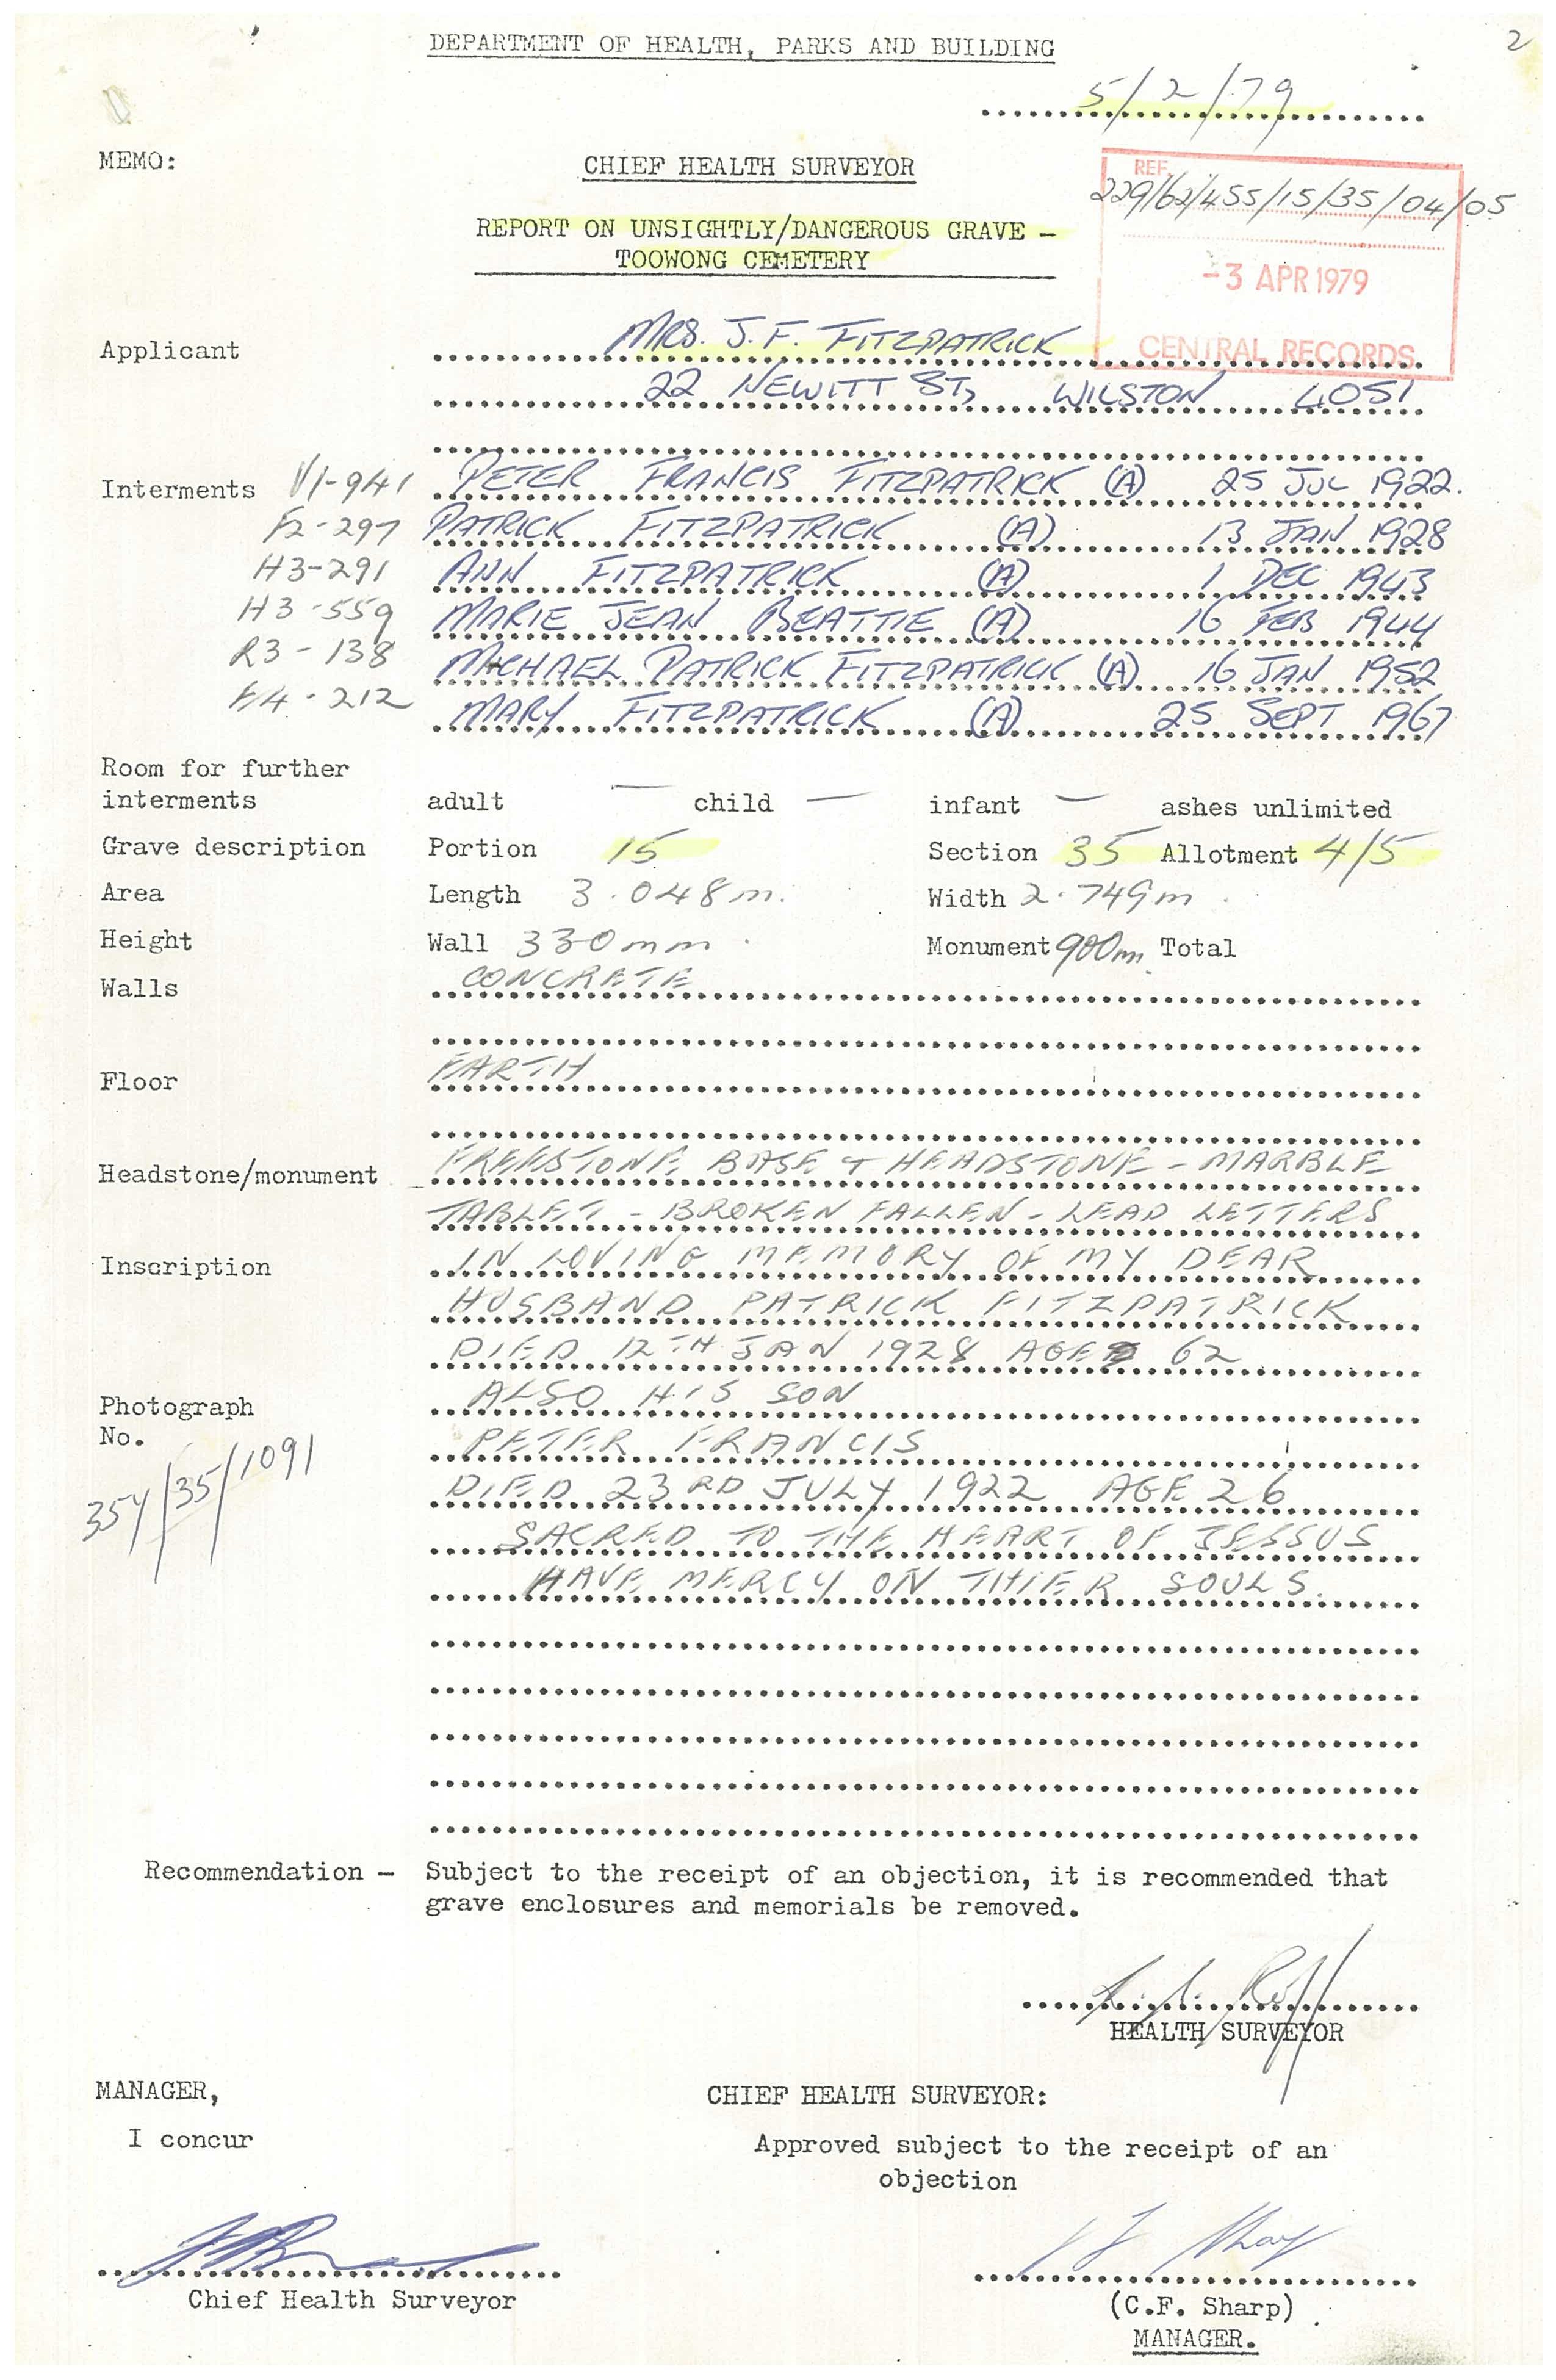 2
DEPARTMENT OF HEALTH, PARKS AND BUILDING
5/2/79
MEMO:
CHIEF HEALTH SURVEYOR
REF.
229/62/455/15/35/04/05
REPORT ON UNSIGHTLY/DANGEROUS GRAVE –
TOOWONG CEMETERY
-3 APR 1979
CENTRAL RECORDS
Applicant MRS. J.F. FITZPATRICK
22 NEWITT ST, WILSTON 4051
Interments V1-941 PETER FRANCIS FITZPATRICK (A) 25 JUL 1922.
F2-297 PATRICK FITZPATRICK (A) 13 JAN 1928
H3-291 ANN FITZPATRICK (A) 1 DEC 1943
H3-559 MARIE JEAN BEATTIE (A) 16 FEB 1944
R3-138 MICHAEL PATRICK FITZPATRICK (A) 16 JAN 1952
F4-212 MARY FITZPATRICK (A) 25 SEPT 1967
Room for further
interments adult — child — infant — ashes unlimited
Grave description Portion 15 Section 35 Allotment 4/5
Area Length 3.048m. Width 2.749m.
Height Wall 330mm. Monument 900mm. Total
Walls CONCRETE
Floor EARTH
Headstone/monument FREESTONE BASE + HEADSTONE - MARBLE
TABLET - BROKEN FALLEN - LEAD LETTERS
Inscription IN LOVING MEMORY OF MY DEAR
HUSBAND PATRICK FITZPATRICK
DIED 12TH JAN 1928 AGE 62
Photograph ALSO HIS SON
No. PETER FRANCIS
354/35/1091 DIED 23RD JULY 1922 AGE 26
SACRED TO THE HEART OF JESSUS
HAVE MERCY ON THIER SOULS.
Recommendation – Subject to the receipt of an objection, it is recommended that
grave enclosures and memorials be removed.
HEALTH SURVEYOR
MANAGER, CHIEF HEALTH SURVEYOR:
I concur Approved subject to the receipt of an
objection
Chief Health Surveyor (C.F. Sharp)
MANAGER.